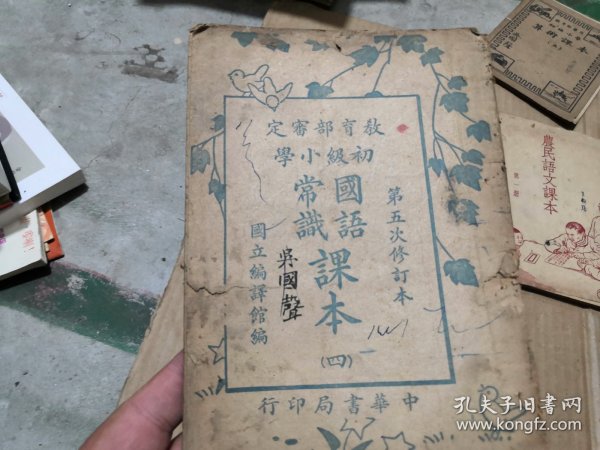 教育部審定
初級小學
第五次修訂本
國語
常識
課本
(四)
國立編譯館編
吳國聲
中華書局印行
算術課本
農民語文課本
第一冊
孔夫子旧书网
www.kongfz.com